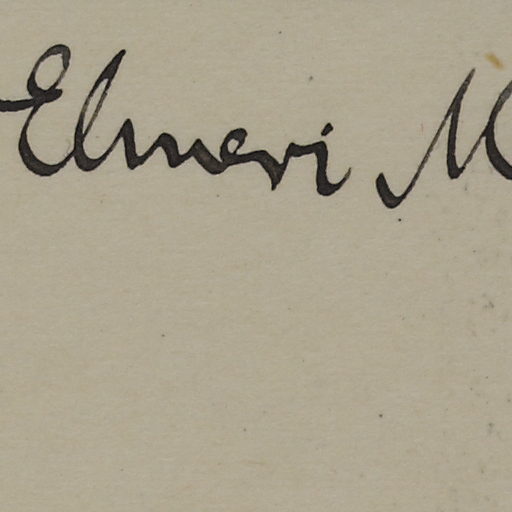 Elmeri M